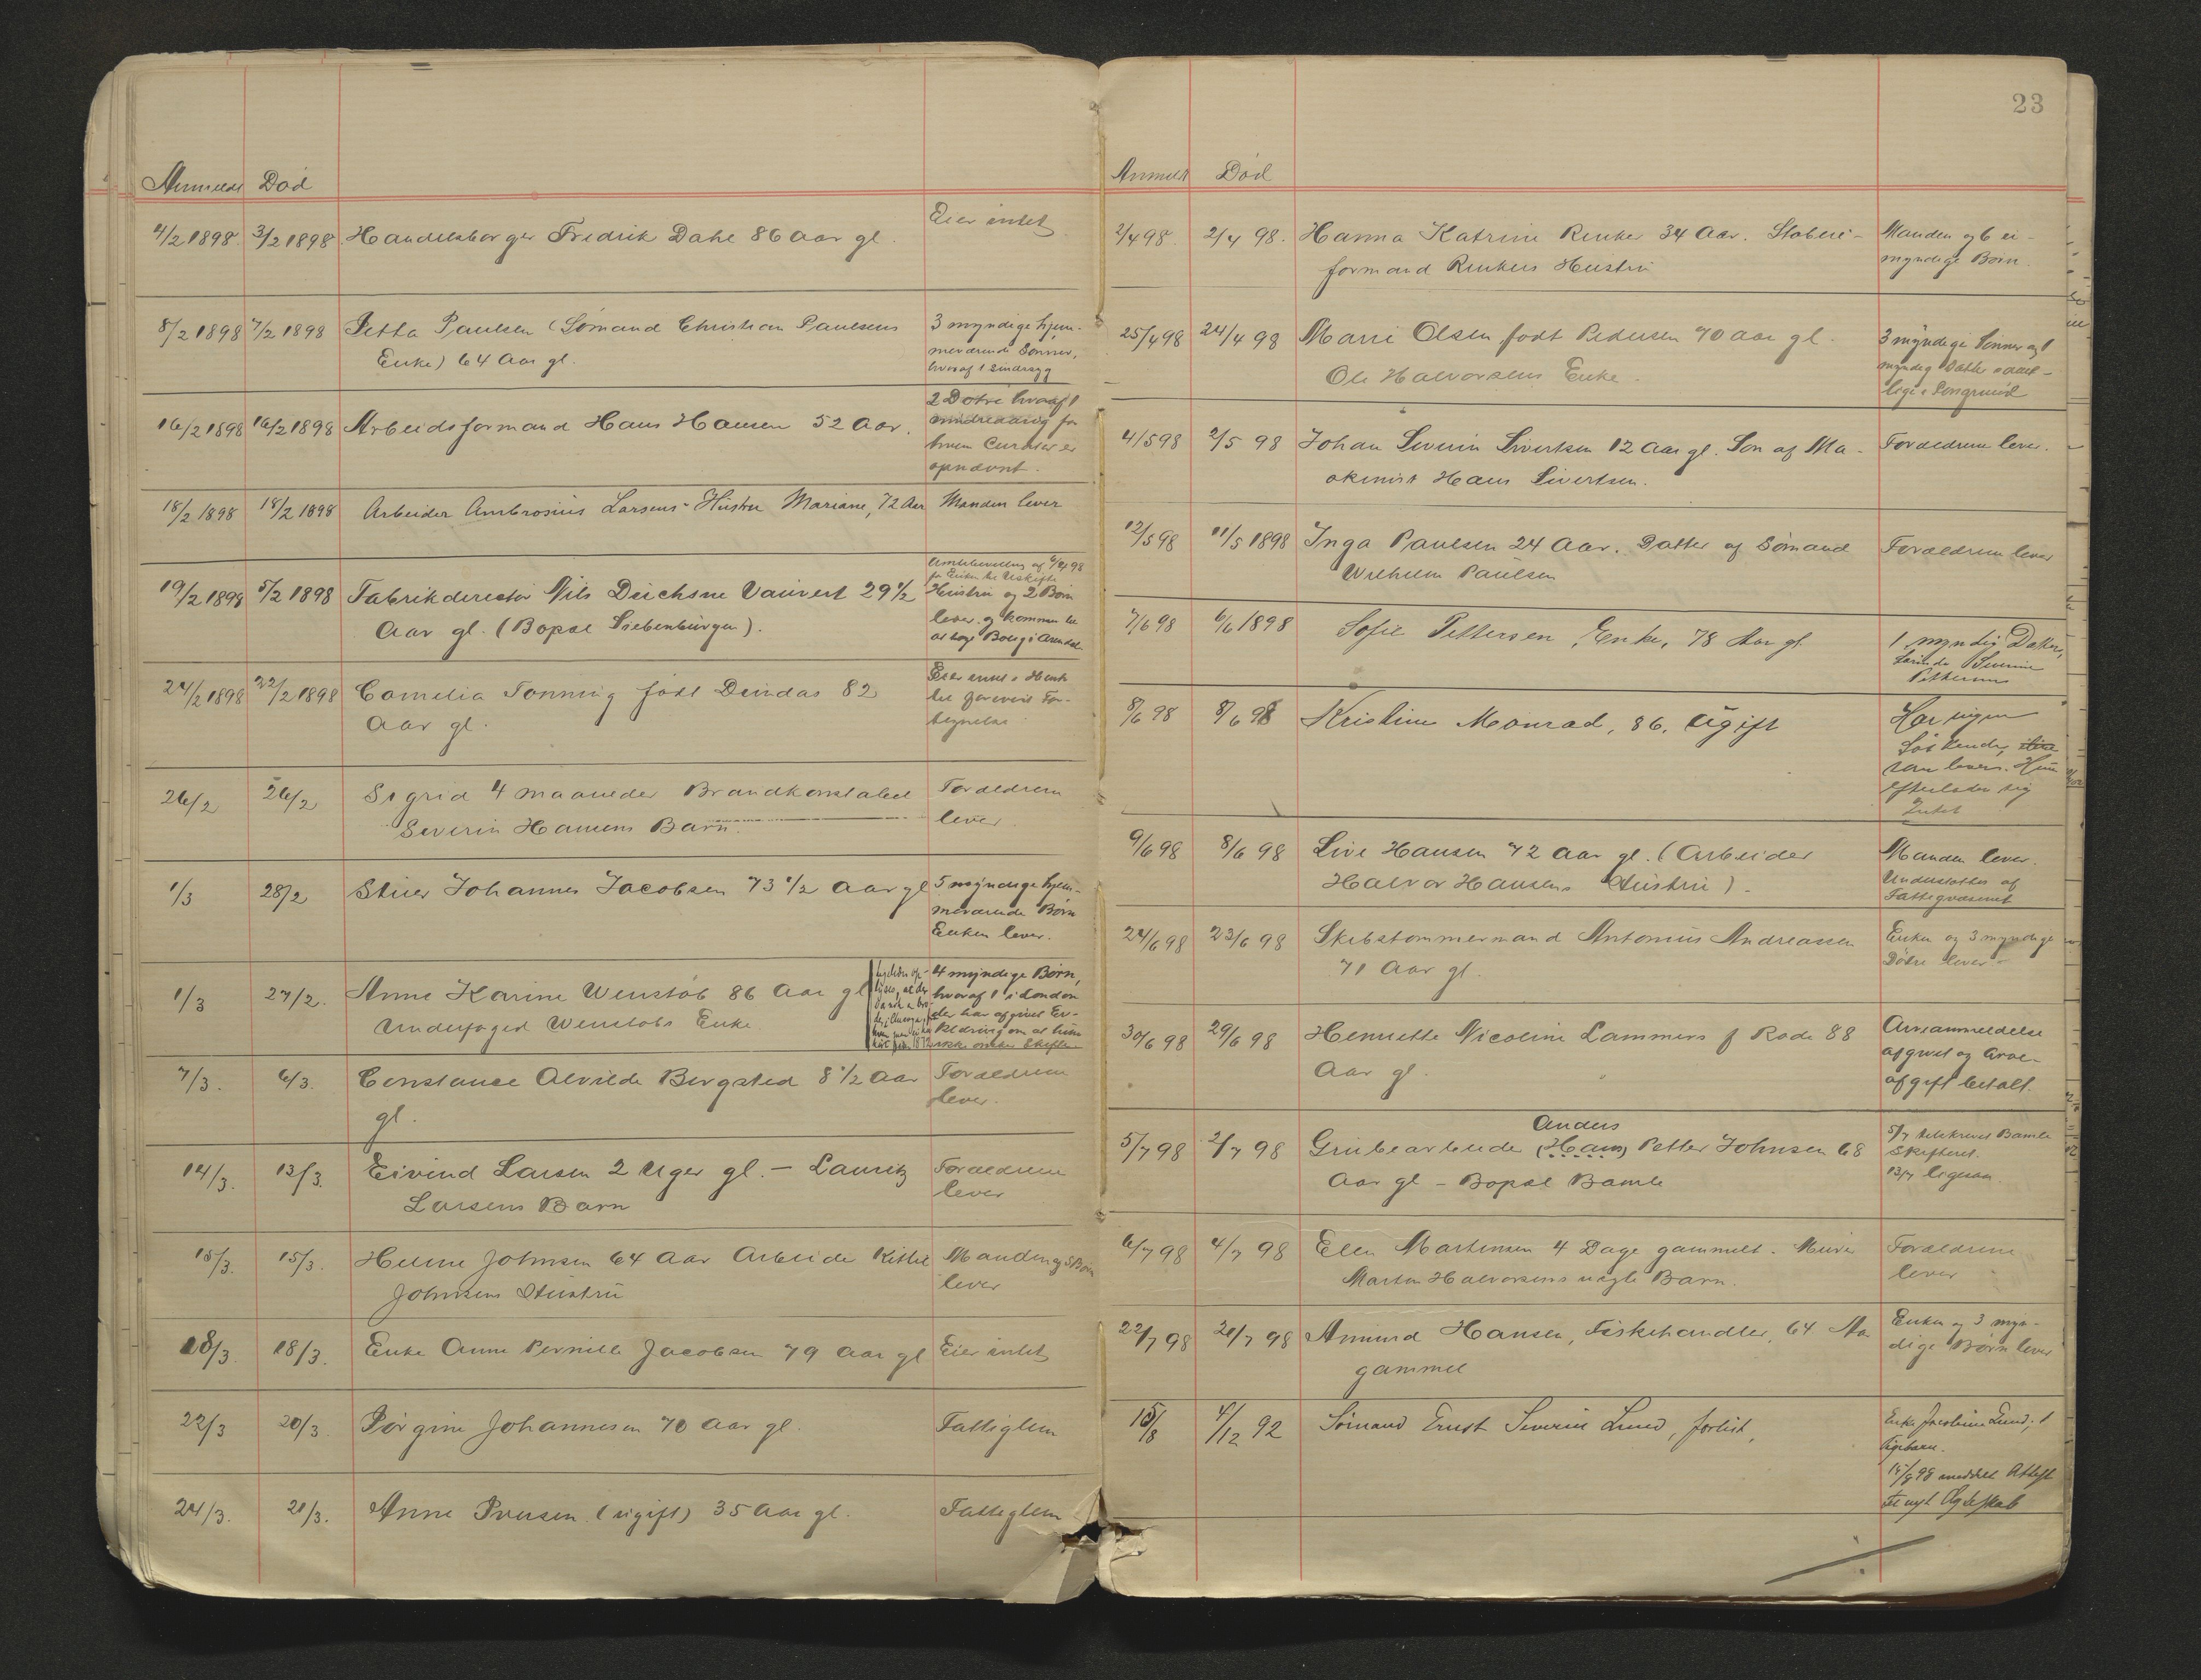 Anmeldt Död
4/2 1898 3/2 1898 Handelsborger Fredrik Dahl 86 Aar gl. Eier intet
8/2 1898 7/2 1898 Petta Paulsen (Sømand Christian Paulsens
Enke) 64 Aar gl.
3 myndige hjem-
meværende Sønner,
hvoraf 1 Sindssyg
16/2 1898 16/2 1898 Arbeidsformand Hans Hansen 52 Aar.
2 Døtre hvoraf 1
mindreaarig for
hvem Curator er
opnævnt.
18/2 1898 18/2 1898 Arbeider Ambrosius Larsens Hustru Mariane, 72 Aar Manden lever
19/2 1898 5/2 1898 Fabrikdirector Nils Deichme Vauvert 29 1/2
Aar gl. (Bopæl Siebenbürgen).
Amtsbevilling af 6/4 98
for Enken til Uskifte
Hustru og 2 Børn
lever og kommer til
at tage Bolig i Arendal
24/2 1898 22/2 1898 Cornelia Tonning født Deindas 82
Aar gl.
Eier intet i Henh
til forevist For-
tegnelse
26/2 26/2 Sigrid 4 maaneder Brandkonstabel
Severin Hansens Barn.
Forældrene
lever
1/3 28/2 Stuer Johannes Jacobsen 73 1/2 Aar gl
5 myndige hjem-
meværende Børn
Enken lever.
1/3 27/2. Anne Karine Wenstöb 86 Aar gl
Underfoged Wenstöbs Enke
4 myndige Børn,
hvoraf 1 i London
der har afgivet Er-
klæring om at hun
ikke ønsker Skifte
7/3. 6/3. Constance Alvilde Bergsted 8 1/2 Aar
gl.
Forældrene
lever.
14/3. 13/3. Eivind Larsen 2 Uger gl. – Lauritz
Larsens Barn
Forældrene
lever
15/3. 15/3. Helene Johnsen 64 Aar Arbeide Kittil
Johnsens Hustru
Manden og 5 Børn
lever
18/3. 18/3. Enke Anne Pernille Jacobsen 79 Aar gl Eier intet
22/3 20/3 Jørgine Johannesen 70 Aar gl. Fattiglem
24/3. 21/3. Anne Iversen (ugift) 35 Aar gl. Fattiglem
23
Anmeldt Död
2/4 98 2/4 98. Hanna Katrine Renker 34 Aar. Støberi-
formand Renkers Hustru
Manden og 6 u-
myndige Børn
25/4 98 24/4 98 Marie Olsen født Pedersen 70 Aar gl.
Ole Halvorsens Enke.
3 myndige Sønner og 1
myndig Datter samt-
lige i Porsgrund
4/5 98 2/5 98 Johan Severin Sivertsen 12 Aar gl. Søn af Ma-
skinist Hans Sivertsen.
Forældrene lever.
12/5 98 11/5 1898 Inga Paulsen 24 Aar. Datter af Sømand
Wilhelm Paulsen
Forældrene lever
7/6 98 6/6 1898 Sofie Pettersen, Enke, 78 Aar gl.
1 myndig Datter,
Severine
Pettersen
8/6 98 8/6 98 Kristine Monrad, 86, ugift
Har ingen
Søskende,
som lever. Hun
efterlader sig
Intet
9/6 98 8/6 98 Live Hansen 72 Aar gl. (Arbeider
Halvor Hansens Hustru).
Manden lever.
Understøttes af
Fattigvæsenet
24/6 98 23/6 98 Skibstømmermand Antonius Andreassen
71 Aar gl.
Enken og 3 myndige
Døtre lever
30/6 98 29/6 98 Henriette Nicoline Lammers f Rode 88
Aar gl.
Arveanmeldelse
afgivet og Arve-
afgift betalt.
5/7 98 2/7 98 Grubearbeide (Hans) Petter Johnsen 68
Anders
Aar gl – Bopæl Bamle
5/7 tilskrevet Bamle
Skifteret.
13/7 ligesaa
6/7 98 4/7 98 Ellen Martinsen 4 Dage gammelt. Murer
Martin Halvorsens uægte Barn.
Forældrene
lever
22/7 98 21/7 98 Amund Hansen, Fiskehandler, 64 Aar
gammel
Enken og 3 myn-
dige Børn lever
15/8 4/12 92 Sømand Ernst Severin Lund, forlist,
Enke Jacobine Lund, 1
Pigebarn.
15/8 98 meddelt Attest
til nyt Ægteskab